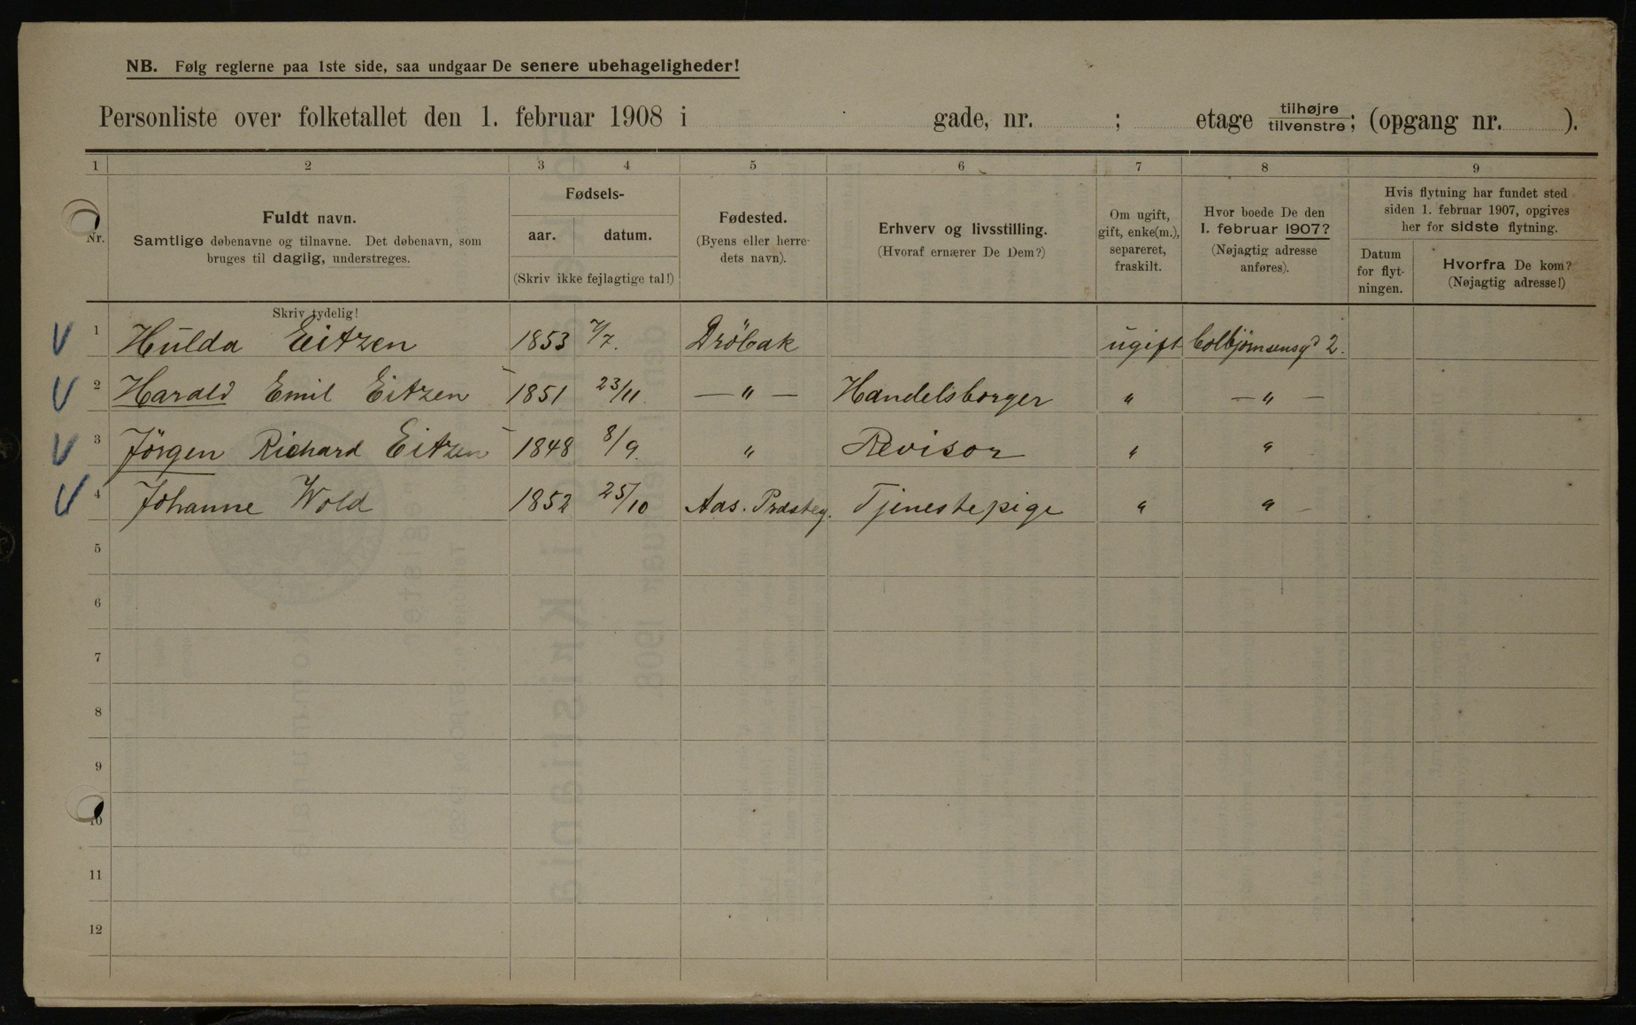 NB. Følg reglerne paa 1ste side, saa undgaar De senere ubehageligheder!
Personliste over folketallet den 1. februar 1908 i gade, nr. ; etage tilhøjre tilvenstre; (opgang nr. ).
1 2 3 4 5 6 7 8 9
Nr.
Fuldt navn.
Samtlige døbenavne og tilnavne. Det døbenavn, som
bruges til daglig, understreges.
Skriv tydelig!
Fødsels-
aar. datum.
(Skriv ikke fejlagtige tal!)
Fødested.
(Byens eller herre-
dets navn).
Erhverv og livsstilling.
(Hvoraf ernærer De Dem?)
Om ugift,
gift, enke(m.),
separeret,
fraskilt.
Hvor boede De den
1. februar 1907?
(Nøjagtig adresse
anføres).
Hvis flytning har fundet sted
siden 1. februar 1907, opgives
her for sidste flytning.
Datum
for flyt-
ningen.
Hvorfra De kom?
(Nøjagtig adresse!)
1 Hulda Eitzen 1853 7/7. Dröbak ugift Colbjørnsensgd 2.
2 Harald Emil Eitzen 1851 23/11. — " — Handelsborger " — " —
3 Jörgen Richard Eitzen 1848 8/9. " Revisor " "
4 Johanne Wold 1852 25/10 Aas. Præsteg. Tjenestepige " " —
5
6
7
8
9
10
11
12